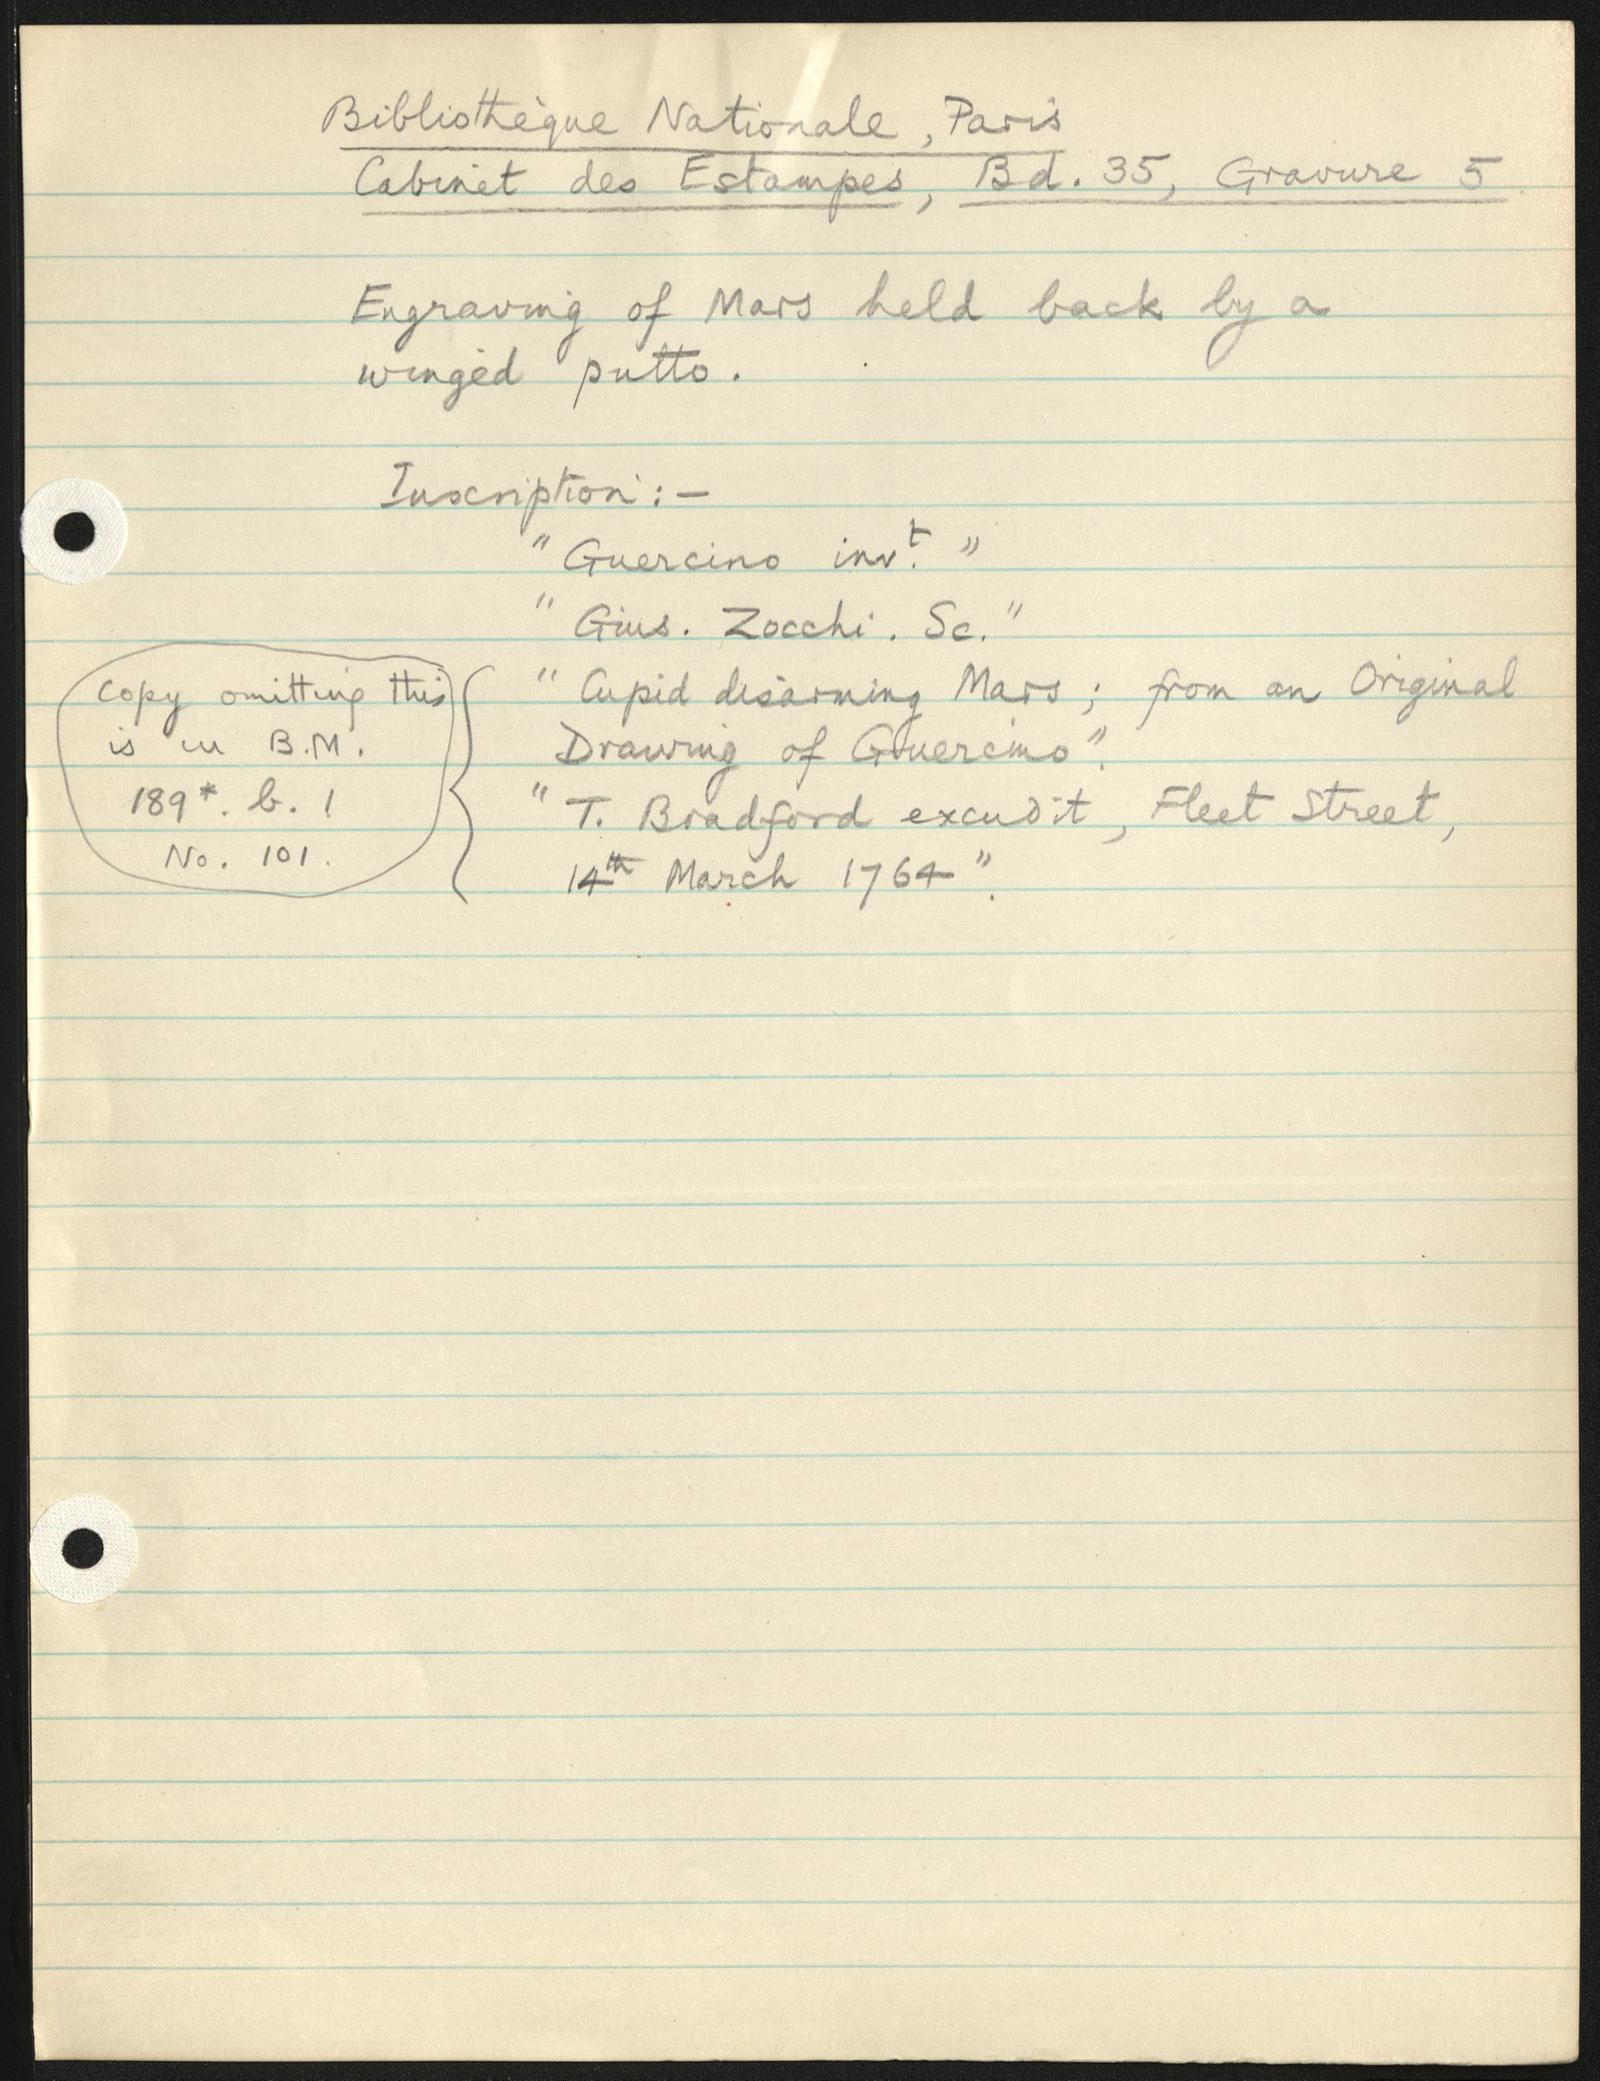 Bibliothèque Nationale, Paris
Cabinet des Estampes, Bd. 35, Gravure 5
Engraving of Mars held back by a
winged putto.
Inscription:—
"Guercino invt."
"Gius. Zocchi. Sc."
"Cupid disarming Mars; from an Original
Drawing of Guercino".
"T. Bradford excudit, Fleet Street,
14th March 1764".
copy omitting this
is in B.M.
189*. b. 1
No. 101.